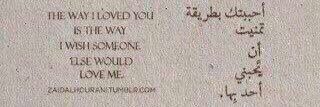 THE WAY I LOVED YOU
IS THE WAY
I WISH SOMEONE
ELSE WOULD
LOVE ME.
ZAIDALHOURANI.TUMBLR.COM
أحببتك بطريقة
تمنيت
أن
يُحبني
أحد بها.